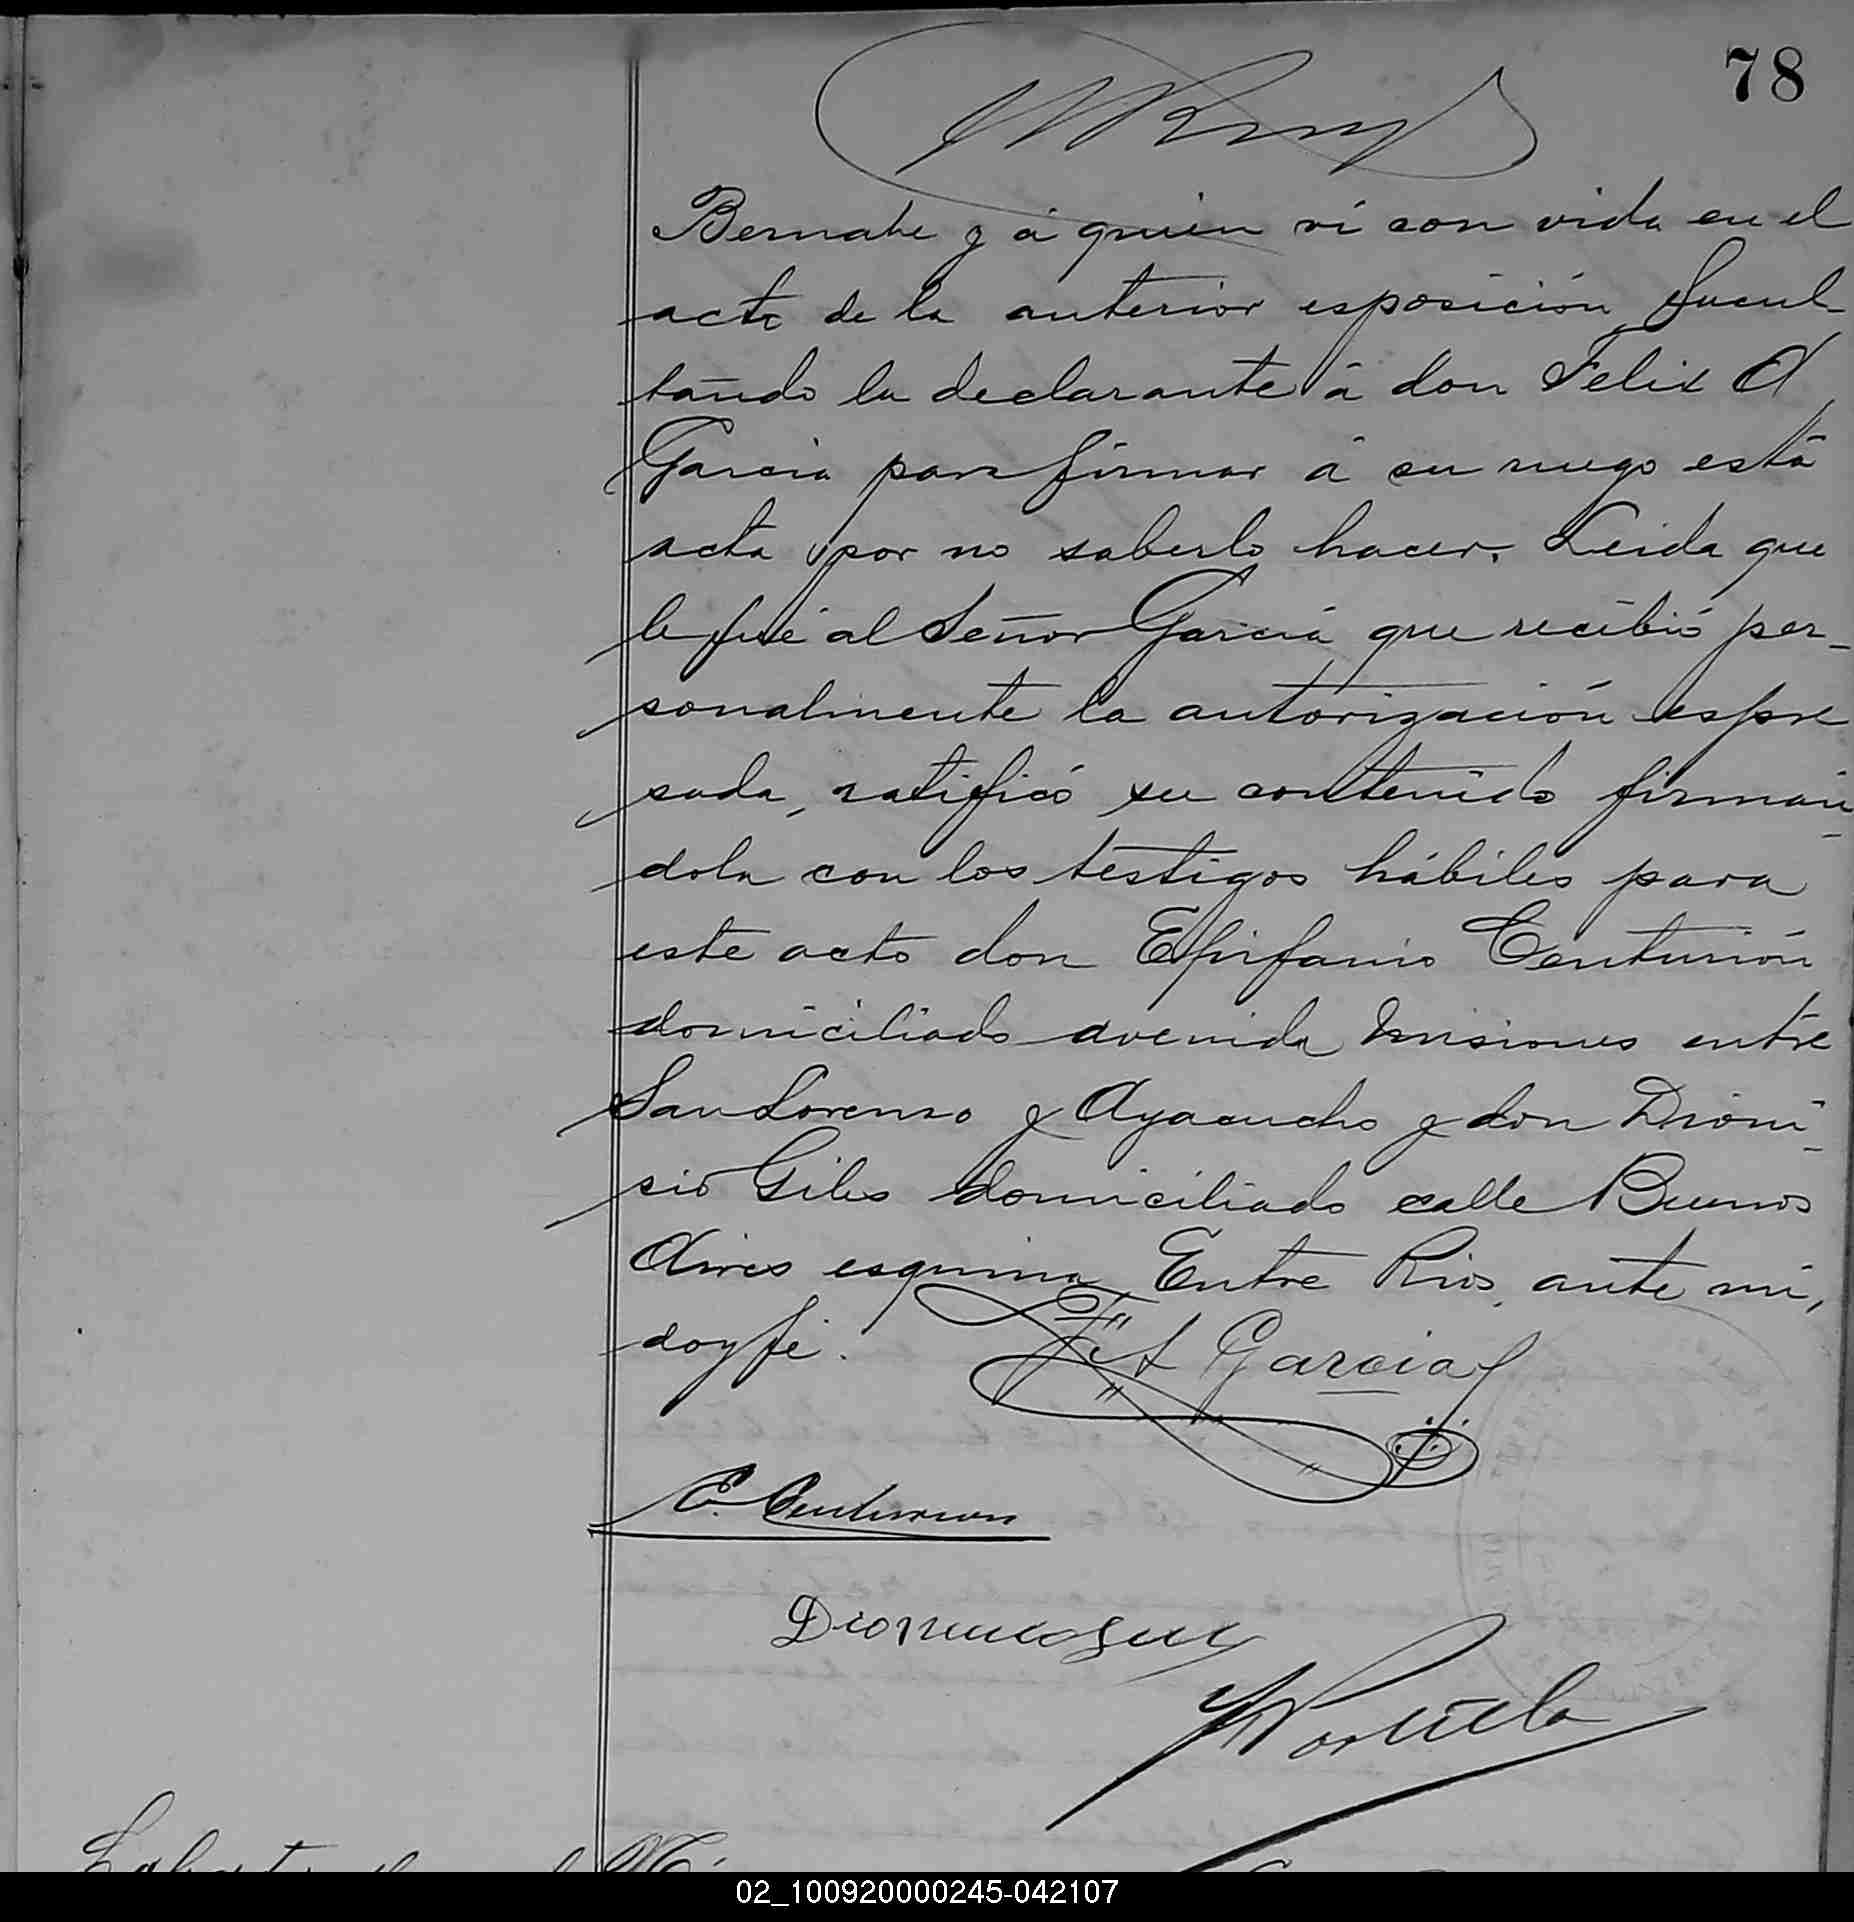 78
Bernabe y á quien ví con vida en el
acto de la anterior esposición, facul-
tando la declarante á don Felix A
Garcia para firmar á su ruego esta
acta por no saberlo hacer. Leida que
le fué al Señor Garcia que recibió per-
sonalmente la autorización espre
sada, ratificó su contenido firmán
dola con los testigos hábiles para
este acto don Epifanio Centurión
domiciliado avenida Misiones entre
San Lorenzo y Ayacucho y don Dioni-
sio Giles domiciliado calle Buenos
Aires esquina Entre Rios, ante mí,
doy fé.
Garcia
E. Centurion
02_100920000245-042107